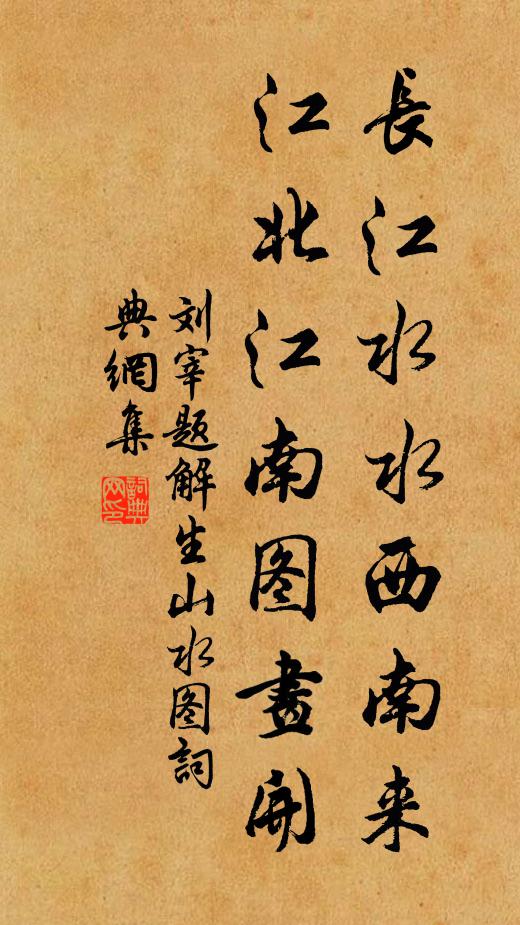 長江水水西南来
江北江南图畫開
刘宰题解生山水图詞
典網集
詞典
网印